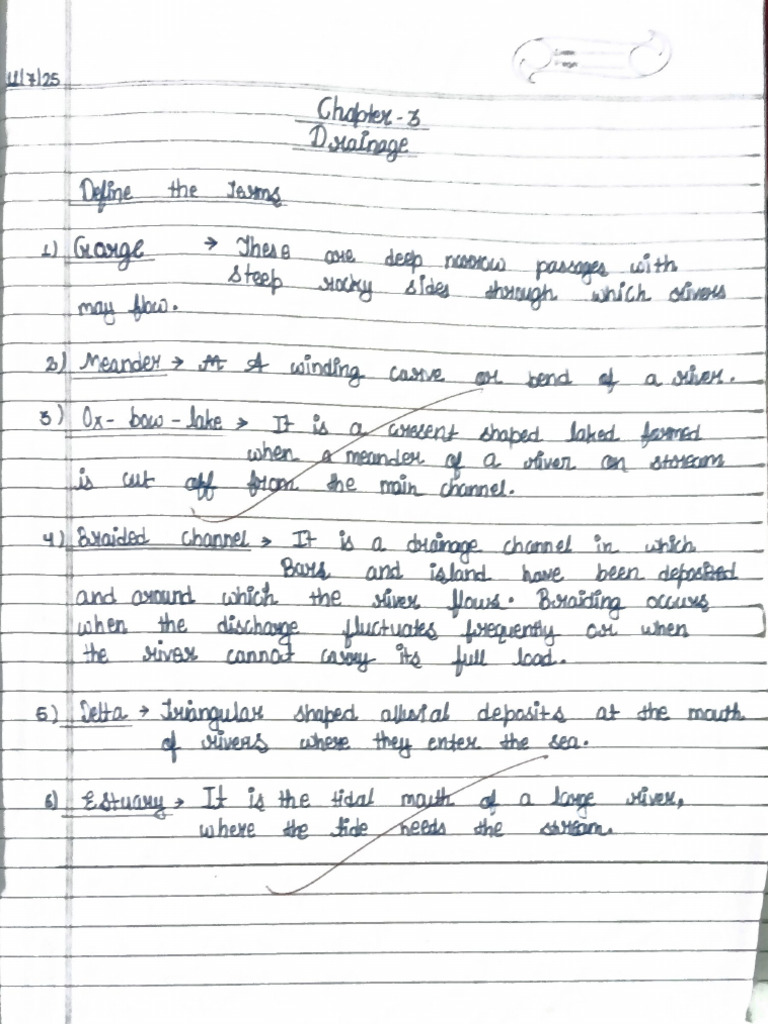 11/7/25
Chapter-3
Drainage
Define the Terms
1) George → These are deep narrow passages with
steep rocky sides through which rivers
may flow.
2) Meander → A winding carve or bend of a river.
3) Ox-bow-lake → It is a cresent shaped laked formed
when a meander of a river on stream
is cut off from the main channel.
4) Braided channel → It is a drainage channel in which
Bars and island have been deposited
and around which the river flows. Braiding occurs
when the discharge fluctuates frequently or when
the river cannot carry its full load.
5) Delta → Triangular shaped alluvial deposits at the mouth
of rivers where they enter the sea.
6) Estuary → It is the tidal mouth of a large river,
where the tide needs the stream.